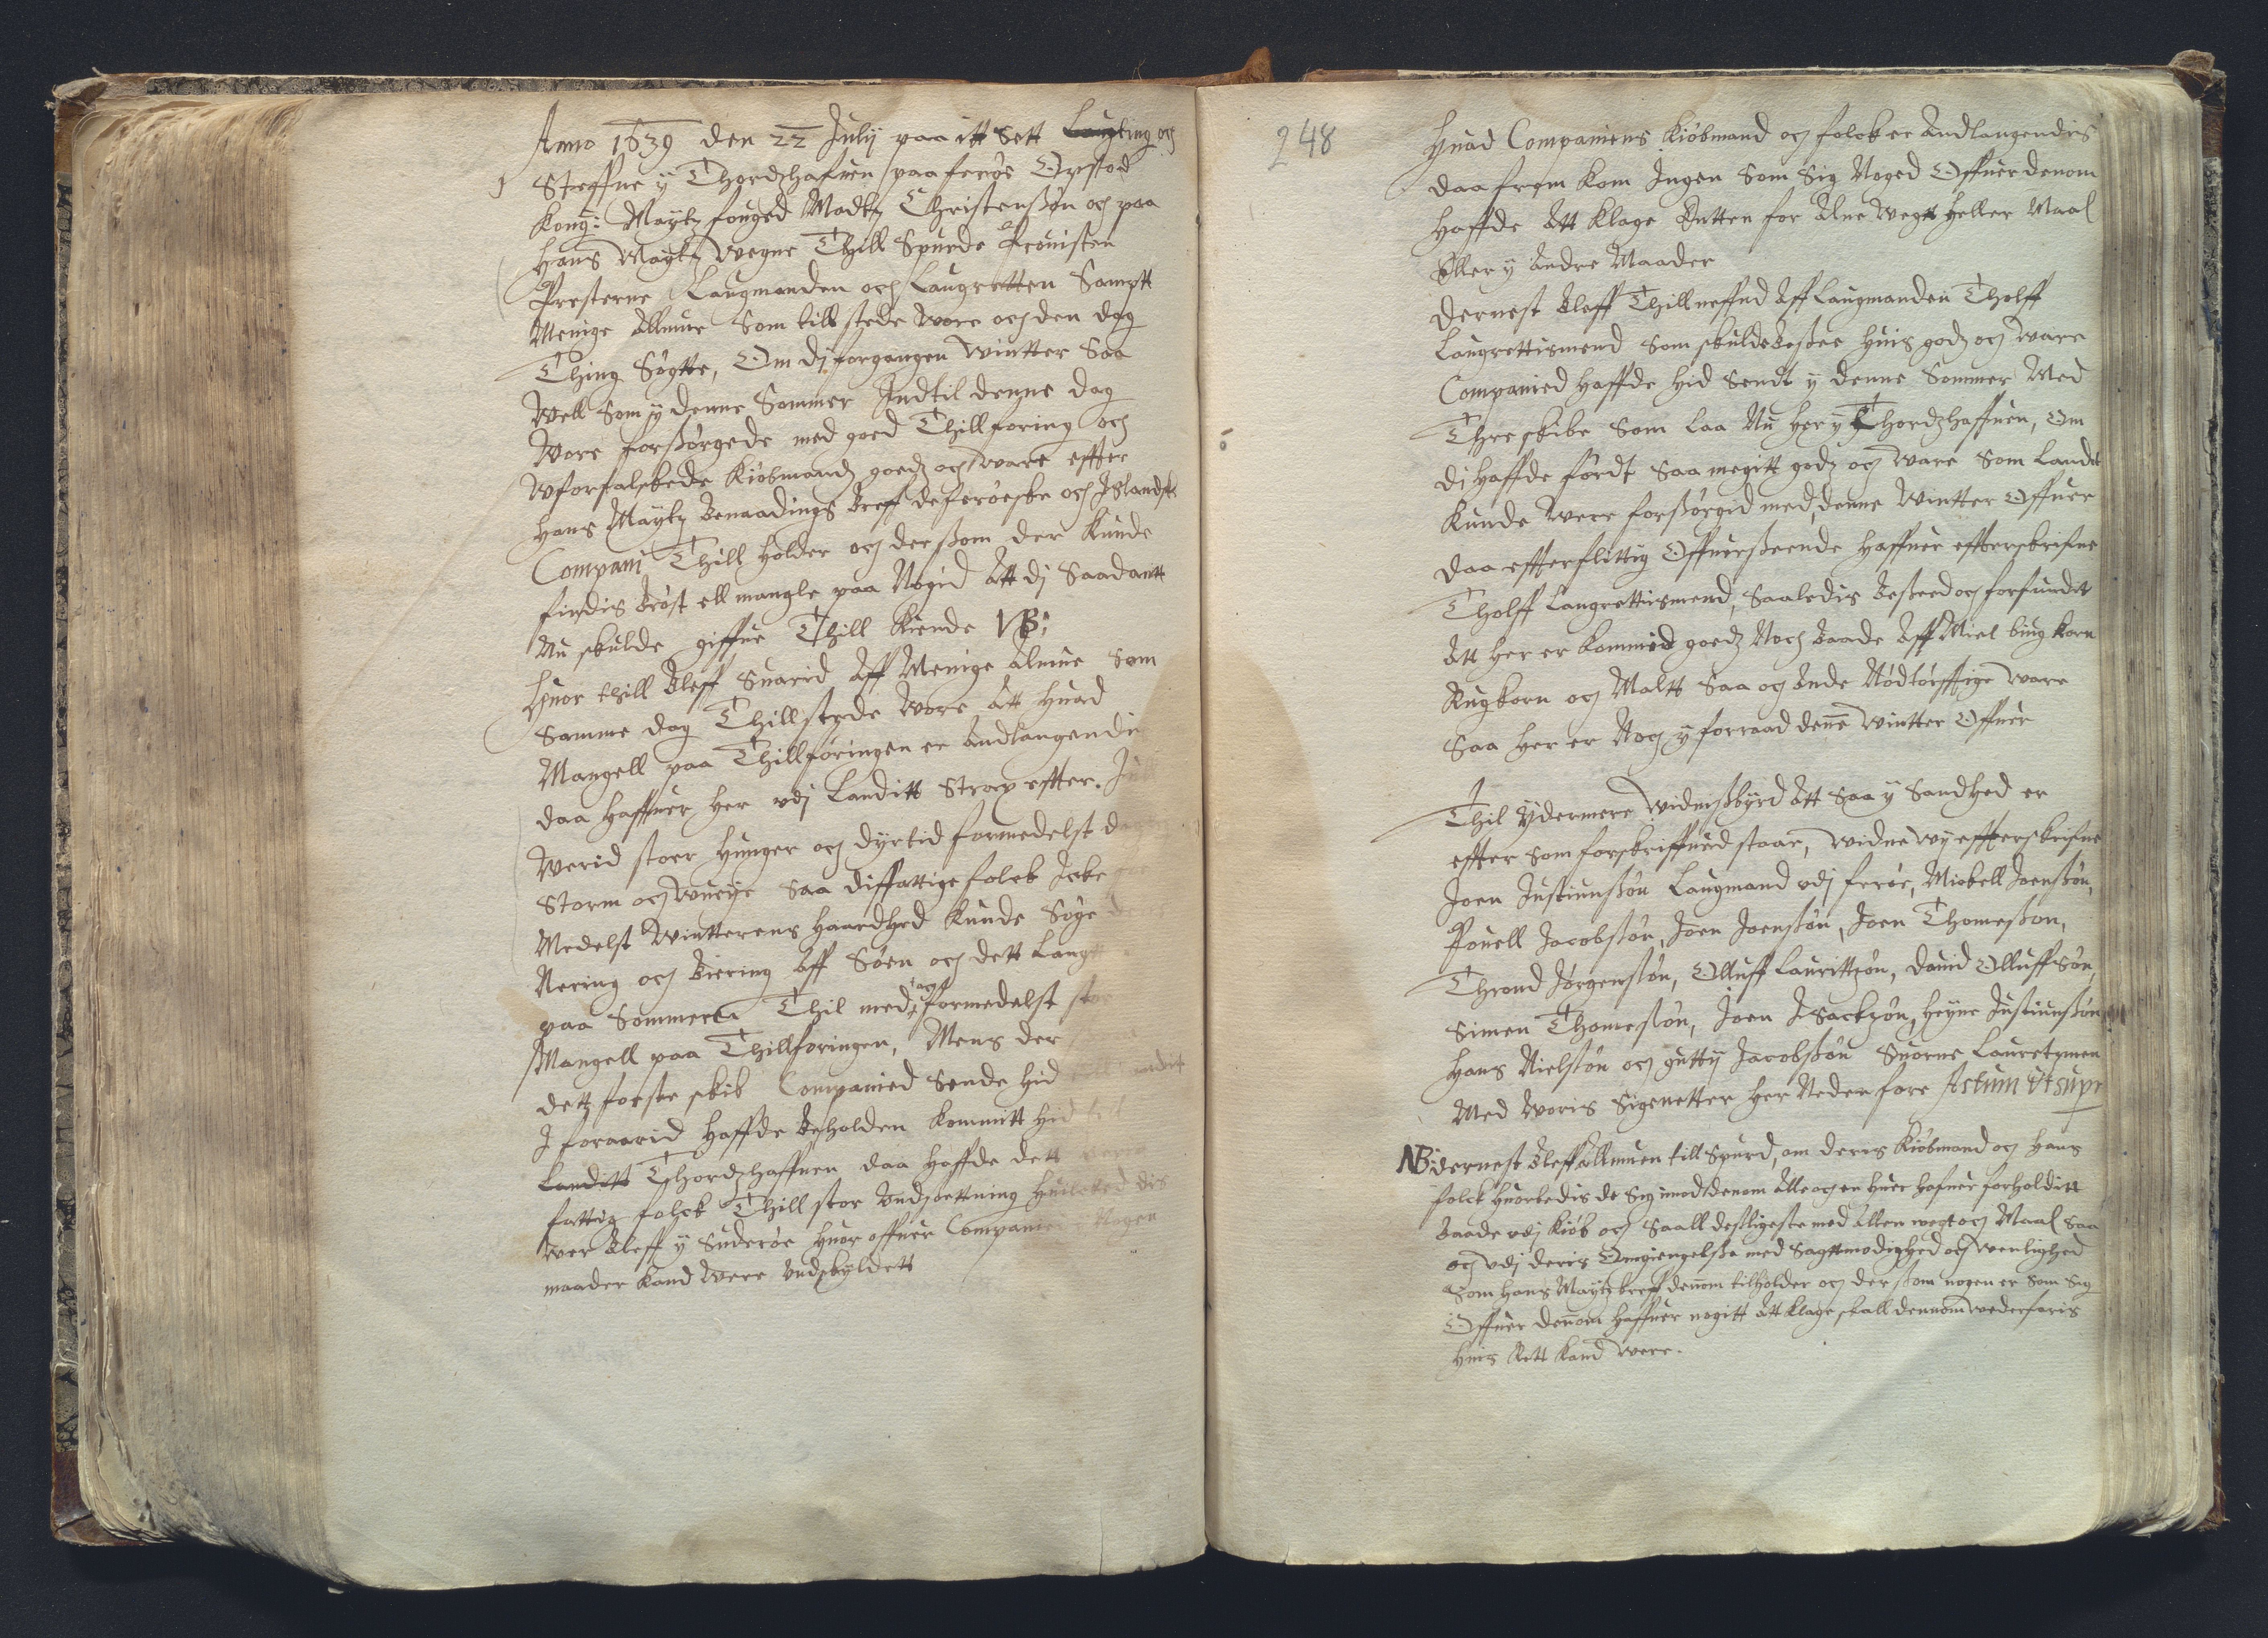 Anno 1639 den 22 Julij paa itt Sett Laugting och
Steffne y Thordzhafuen paa ferøe Opstod
Kong: Maytz fouged Madtz Christensøn och paa
Hans Maytz Wegne Thill Spurde Prouisten
Presterne Laugmanden och Laugretten Sampt
Menige Allmue Som till stede wore och den dag
Thing Søgtte, Om dj forgangen Wintter Saa
Well Som y denne Sommer Indtil denne dag
Wore forsørgede med goed Thillføring och
Wforfalskede Kiøbmandz goedz och ware effter
Hans Maytz Benaadings Breff de ferøeske och Islandske
Compani Thill Holder och derssom der Kunde
findis Brøst ell mangle paa Nogid Att dj Saadantt
Nu skulde giffue Thill Kiende NB:
Huor thill Bleff Suarid Aff Menige Almue Som
Samme dag Thillstede Wore Att Huad
Mangell paa Thillføringen er Andlangendis
daa Haffuer Her vdj Landitt Strax effter Jull
Werid stoer Hunger och dyrtid formedelst
Storm och Wueije Saa di fattige folck Icke
Medelst Wintterens Haardhed Kunde Søge
Nering och Biering Aff Søen och dett Langtt
paa Sommeren Thil med och formedelst stor
Mangell paa Thillforingen, Mens der
dett første skib Companied Sende Hid
I foraarid Haffde Beholden Kommitt Hid
Landitt Thordzhaffuen daa Haffde dett
fattig folck Thill stor Vndsettning Huilcked dis
wer Bleff y Suderøe Huor offuer Companied y Nogen
maader Kand Were Vndskyldett
248
Huad Companiens Kiøbmand och folck er Andlangendis
daa frem Kom Ingen Som Sig Noged Offuer denom
Haffde Att Klage Entten for Alne Wegtt Heller Maal
Eller y Andre Maader
Dernest Bleff Thillneffnd Aff Laugmanden Tholff
Laugrettismend Som skulde Besee Huis godz och ware
Companied Haffde Hid Sendt y denne Sommer Med
Thre skibe Som Laa Nu Her y Thordzhaffuen, Om
dj Haffde Førdt Saa megitt godz och ware Som Landet
Kunde Were forsørgid med, denne Wintter Offuer
daa effter flittig Offuerseende Haffuer effterskrifne
Tholff Laugrettismend, Saaledis Beseed och forfundit
Att Her er Kommid goedz Noch Baade Aff Miel biug Korn
Rugkorn och Maltt Saa och Ande Nødtørfftige ware
Saa Her er Noch y forraad denne Wintter Offuer
Thil Ydermere Widnissbyrd Att Saa y Sandhed er
effter Som forskriffuid staar, Widne Wy effterskrifne
Joen Justinussøn Laugmand vdj ferøe, Mickell Joenssøn,
Pouell Jacobssøn, Joen Joenssøn, Joen Thomessøn,
Thrond Jørgenssøn, Olluff Laurittzøn, Dauid Olluffsøn,
Simen Thomessøn, Joen Isackzøn, Heyne Justinussøn
Hans Nielssøn och gutty Jacobssøn Suorne Lauretzmen
Med Woris Signetter Her Neden fore Actum Ut supr
NB: dernest Bleff Allmuen till Spurd, om deres Kiøbmand och Hans
folck Huorledis de Sig imod denom Alle och en Huer Hafuer forholditt
Baade vdj Kiøb och Saall desligeste med Allen wegt och Maal Saa
och vdj deris Omgiengelsse med Sagttmodighed och Wenlighed
Som Hans Maytz breff dennom tilholder och derssom nogen er Som Sig
Offuer dennom Haffuer nogitt Att Klage skall dennom wederfaris
Huis Rett Kand Were.